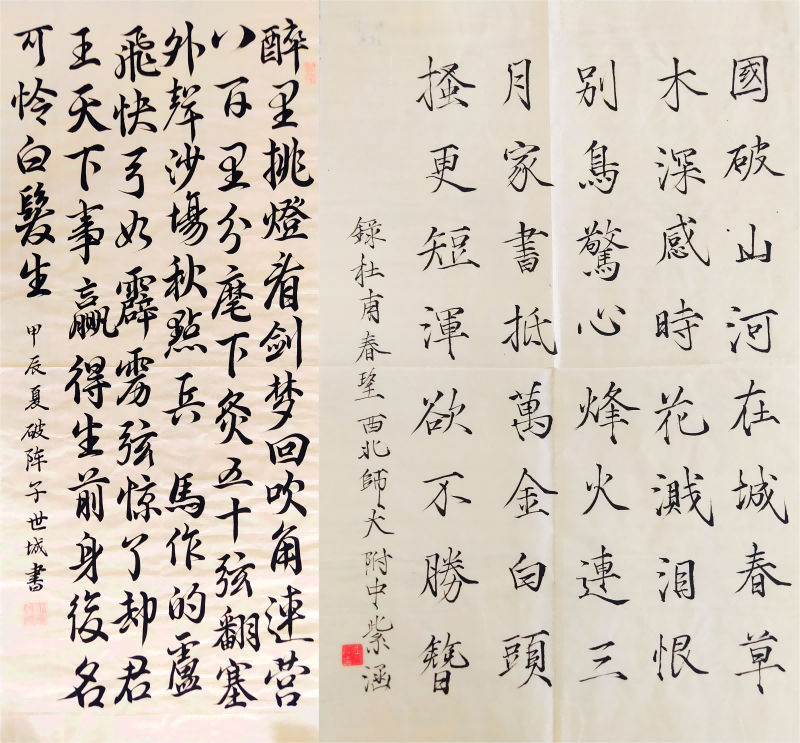 醉里挑燈看剑梦回吹角連营
八百里分麾下炙五十弦翻塞
外聲沙場秋點兵 馬作的盧
飛快弓如霹雳弦惊了却君
王天下事贏得生前身後名
可怜白髮生 甲辰夏破阵子世城書
國破山河在城春草
木深感時花濺泪恨
别鳥驚心烽火連三
月家書抵萬金白頭
搔更短渾欲不勝簪
録杜甫春望西北師大附中紫涵